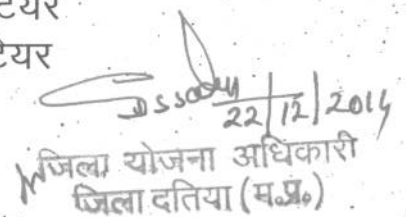 टेयर
टेयर
22/12/2014
जिला योजना अधिकारी
जिला दतिया (म.प्र.)